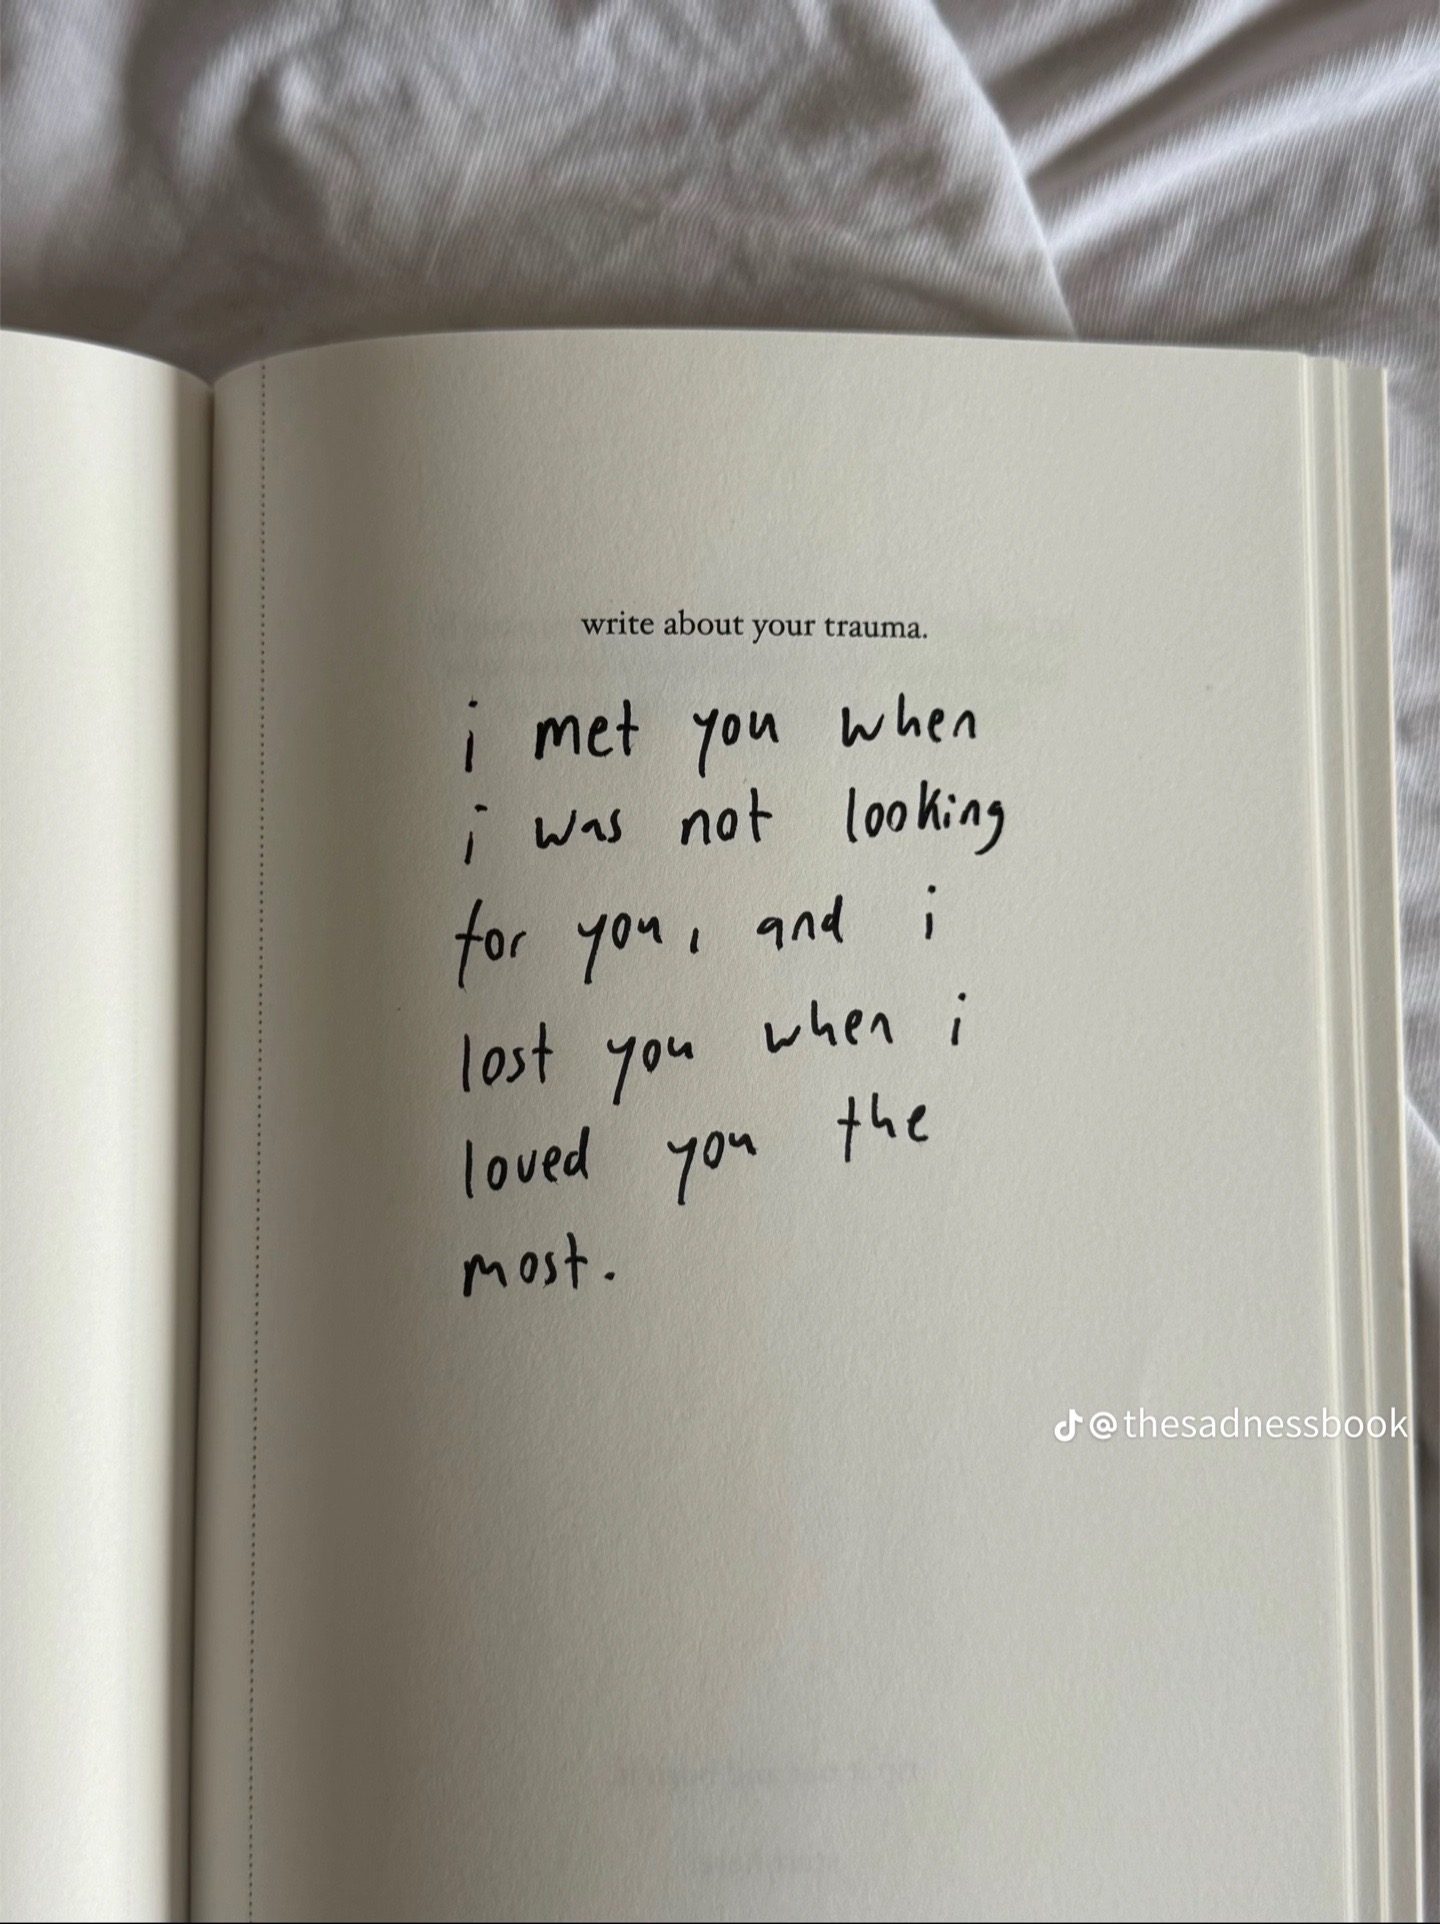 write about your trauma.
i met you when
i was not looking
for you, and i
lost you when i
loved you the
most.
@thesadnessbook